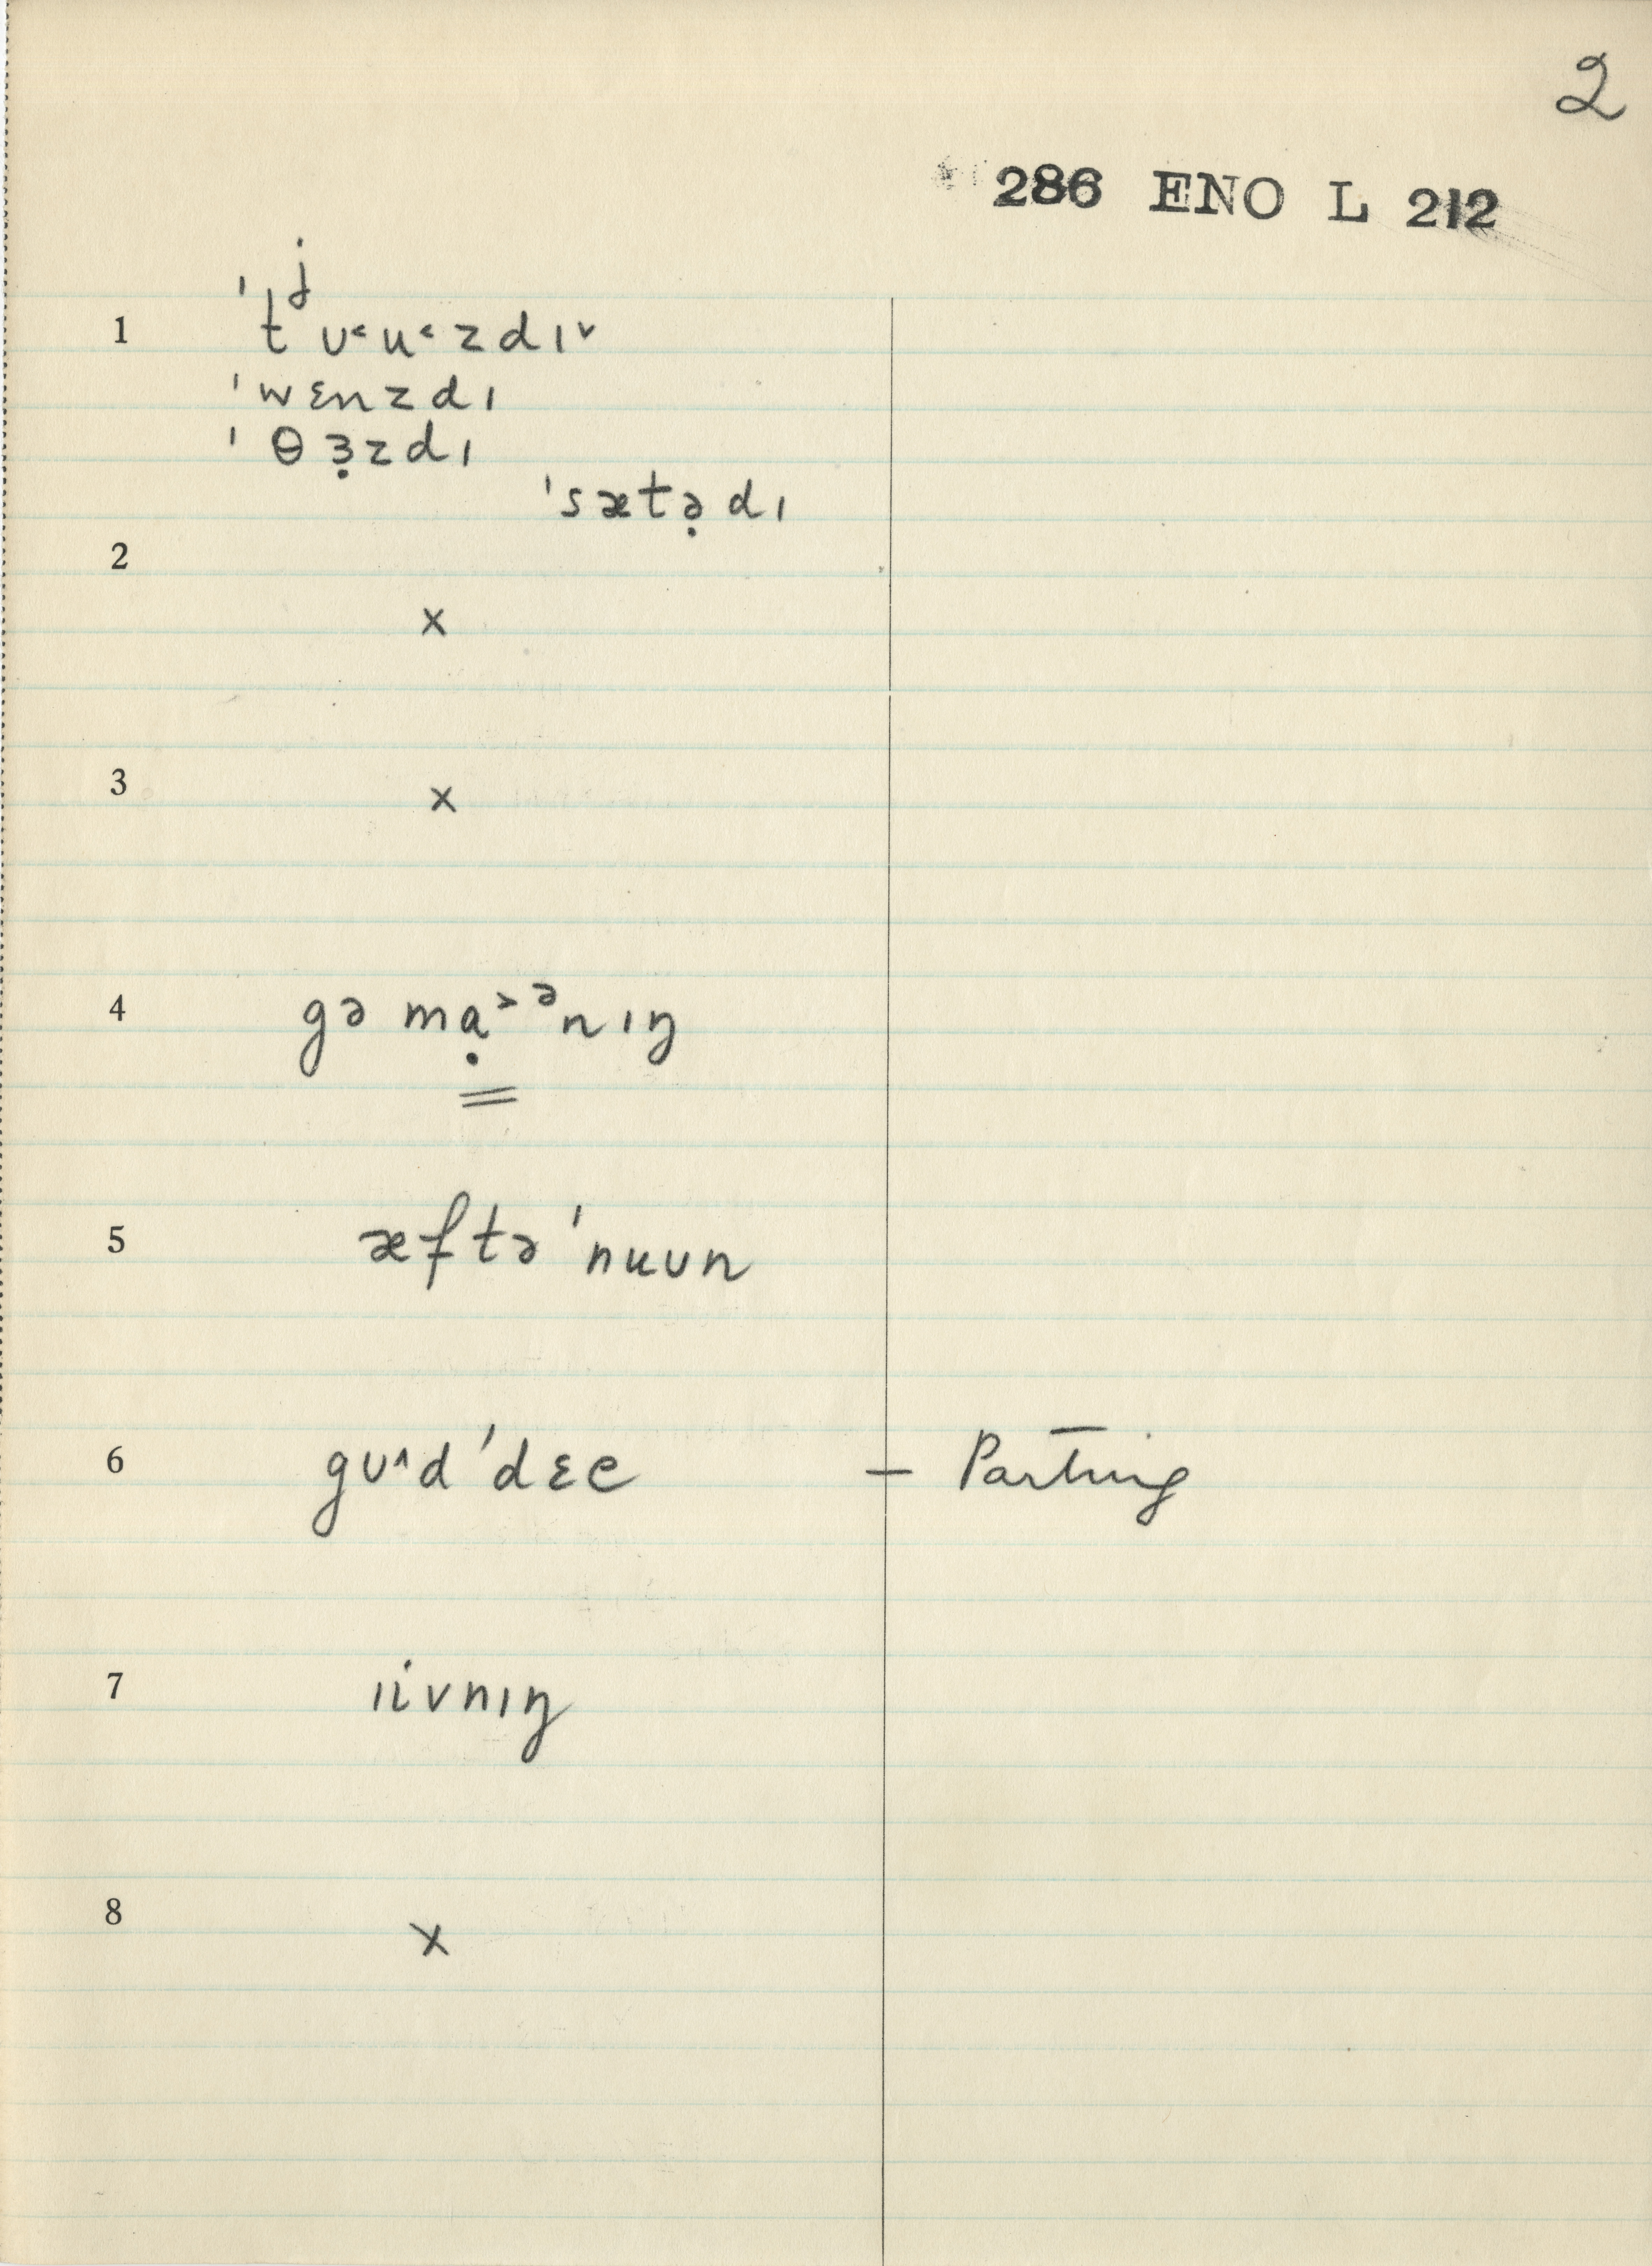 2
286 ENO L 212
1 ˈtʲʊ˂u˂zdɪ˅
ˈwɛnzdɪ
ˈθɜ̣zdɪ
ˈsætə̣dɪ
2
x
3
x
4 gə mɑ̣˃ᵊnɪŋ
5 æftəˈnuʊn
6 gʊ^dˈdɛe – Parting
7 ɪivnɪŋ
8
x